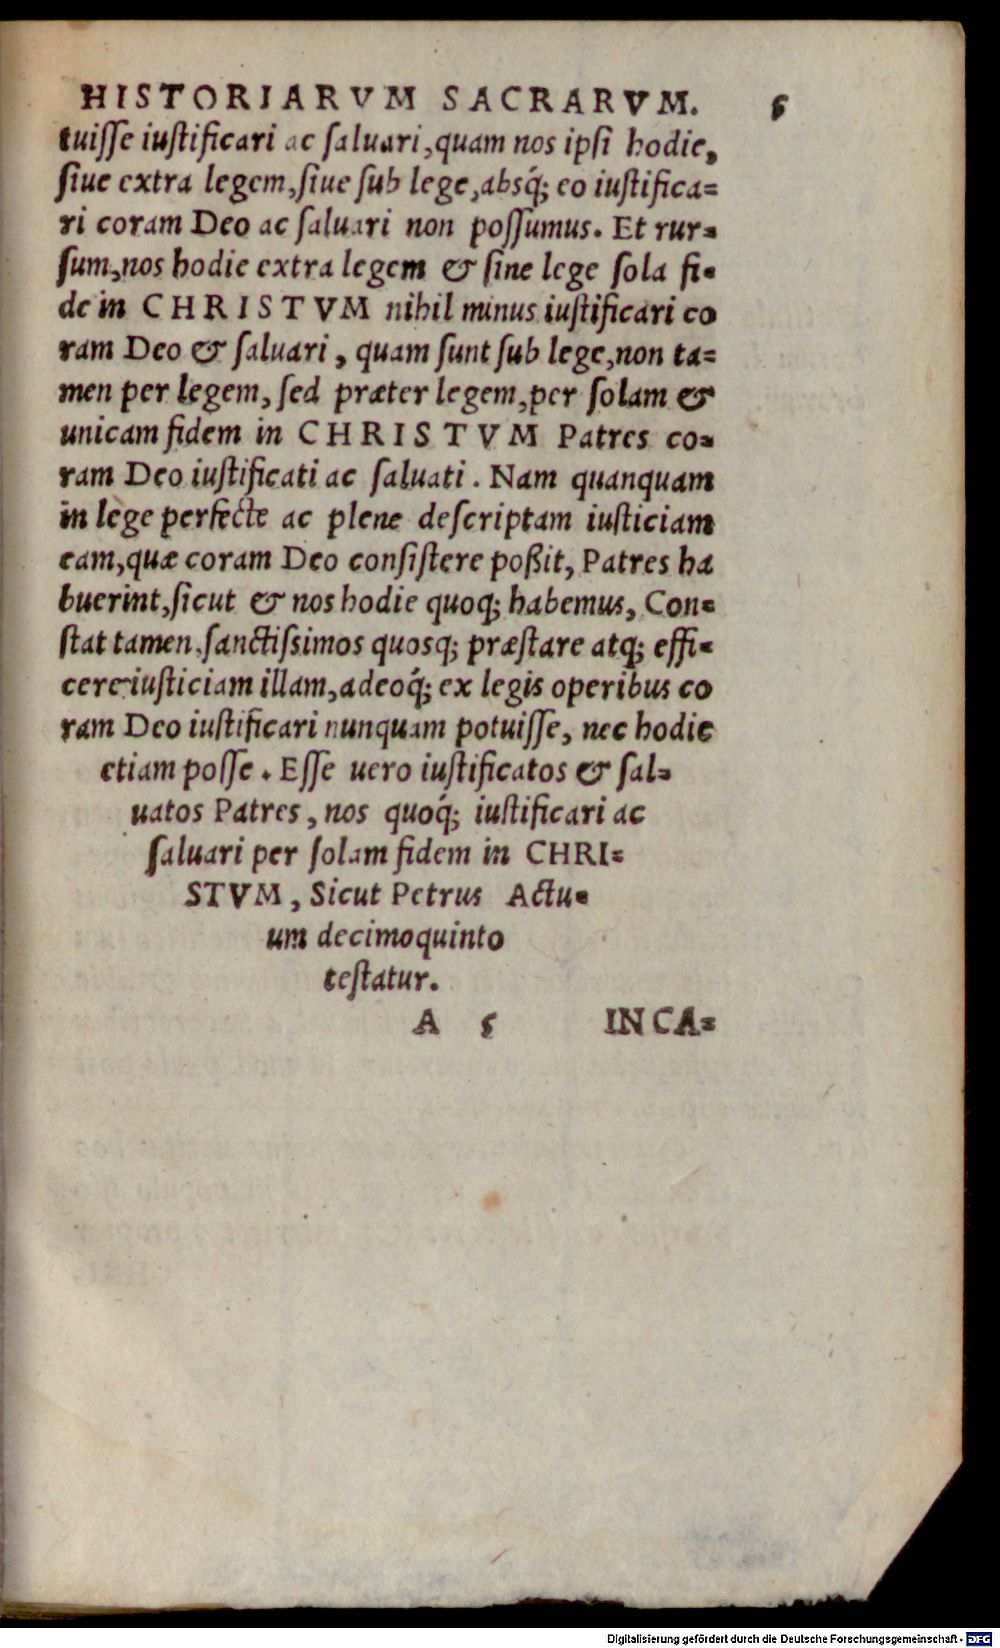 HISTORIARVM SACRARVM. 5
tuiſſe iuſtificari ac ſaluari, quam nos ipſi hodie,
ſiue extra legem, ſiue ſub lege, absq́; eo iuſtifica=
ri coram Deo ac ſaluari non poſſumus. Et rur=
ſum, nos hodie extra legem & ſine lege ſola fi=
de in CHRISTVM nihil minus iuſtificari co
ram Deo & ſaluari, quam ſunt ſub lege, non ta=
men per legem, ſed præter legem, per ſolam &
unicam fidem in CHRISTVM Patres co=
ram Deo iuſtificati ac ſaluati. Nam quanquam
in lege perfecte ac plene deſcriptam iuſticiam
eam, quæ coram Deo conſiſtere poßit, Patres ha
buerint, ſicut & nos hodie quoq; habemus, Con=
ſtat tamen, ſanctiſsimos quosq; præſtare atq; effi=
cere iuſticiam illam, adeoq́; ex legis operibus co
ram Deo iuſtificari nunquam potuiſſe, nec hodie
etiam poſſe. Eſſe uero iuſtificatos & ſal=
uatos Patres, nos quoq́; iuſtificari ac
ſaluari per ſolam fidem in CHRI=
STVM, Sicut Petrus Actu=
um decimoquinto
teſtatur.
A 5 IN CA=
Digitalisierung gefördert durch die Deutsche Forschungsgemeinschaft - DFG